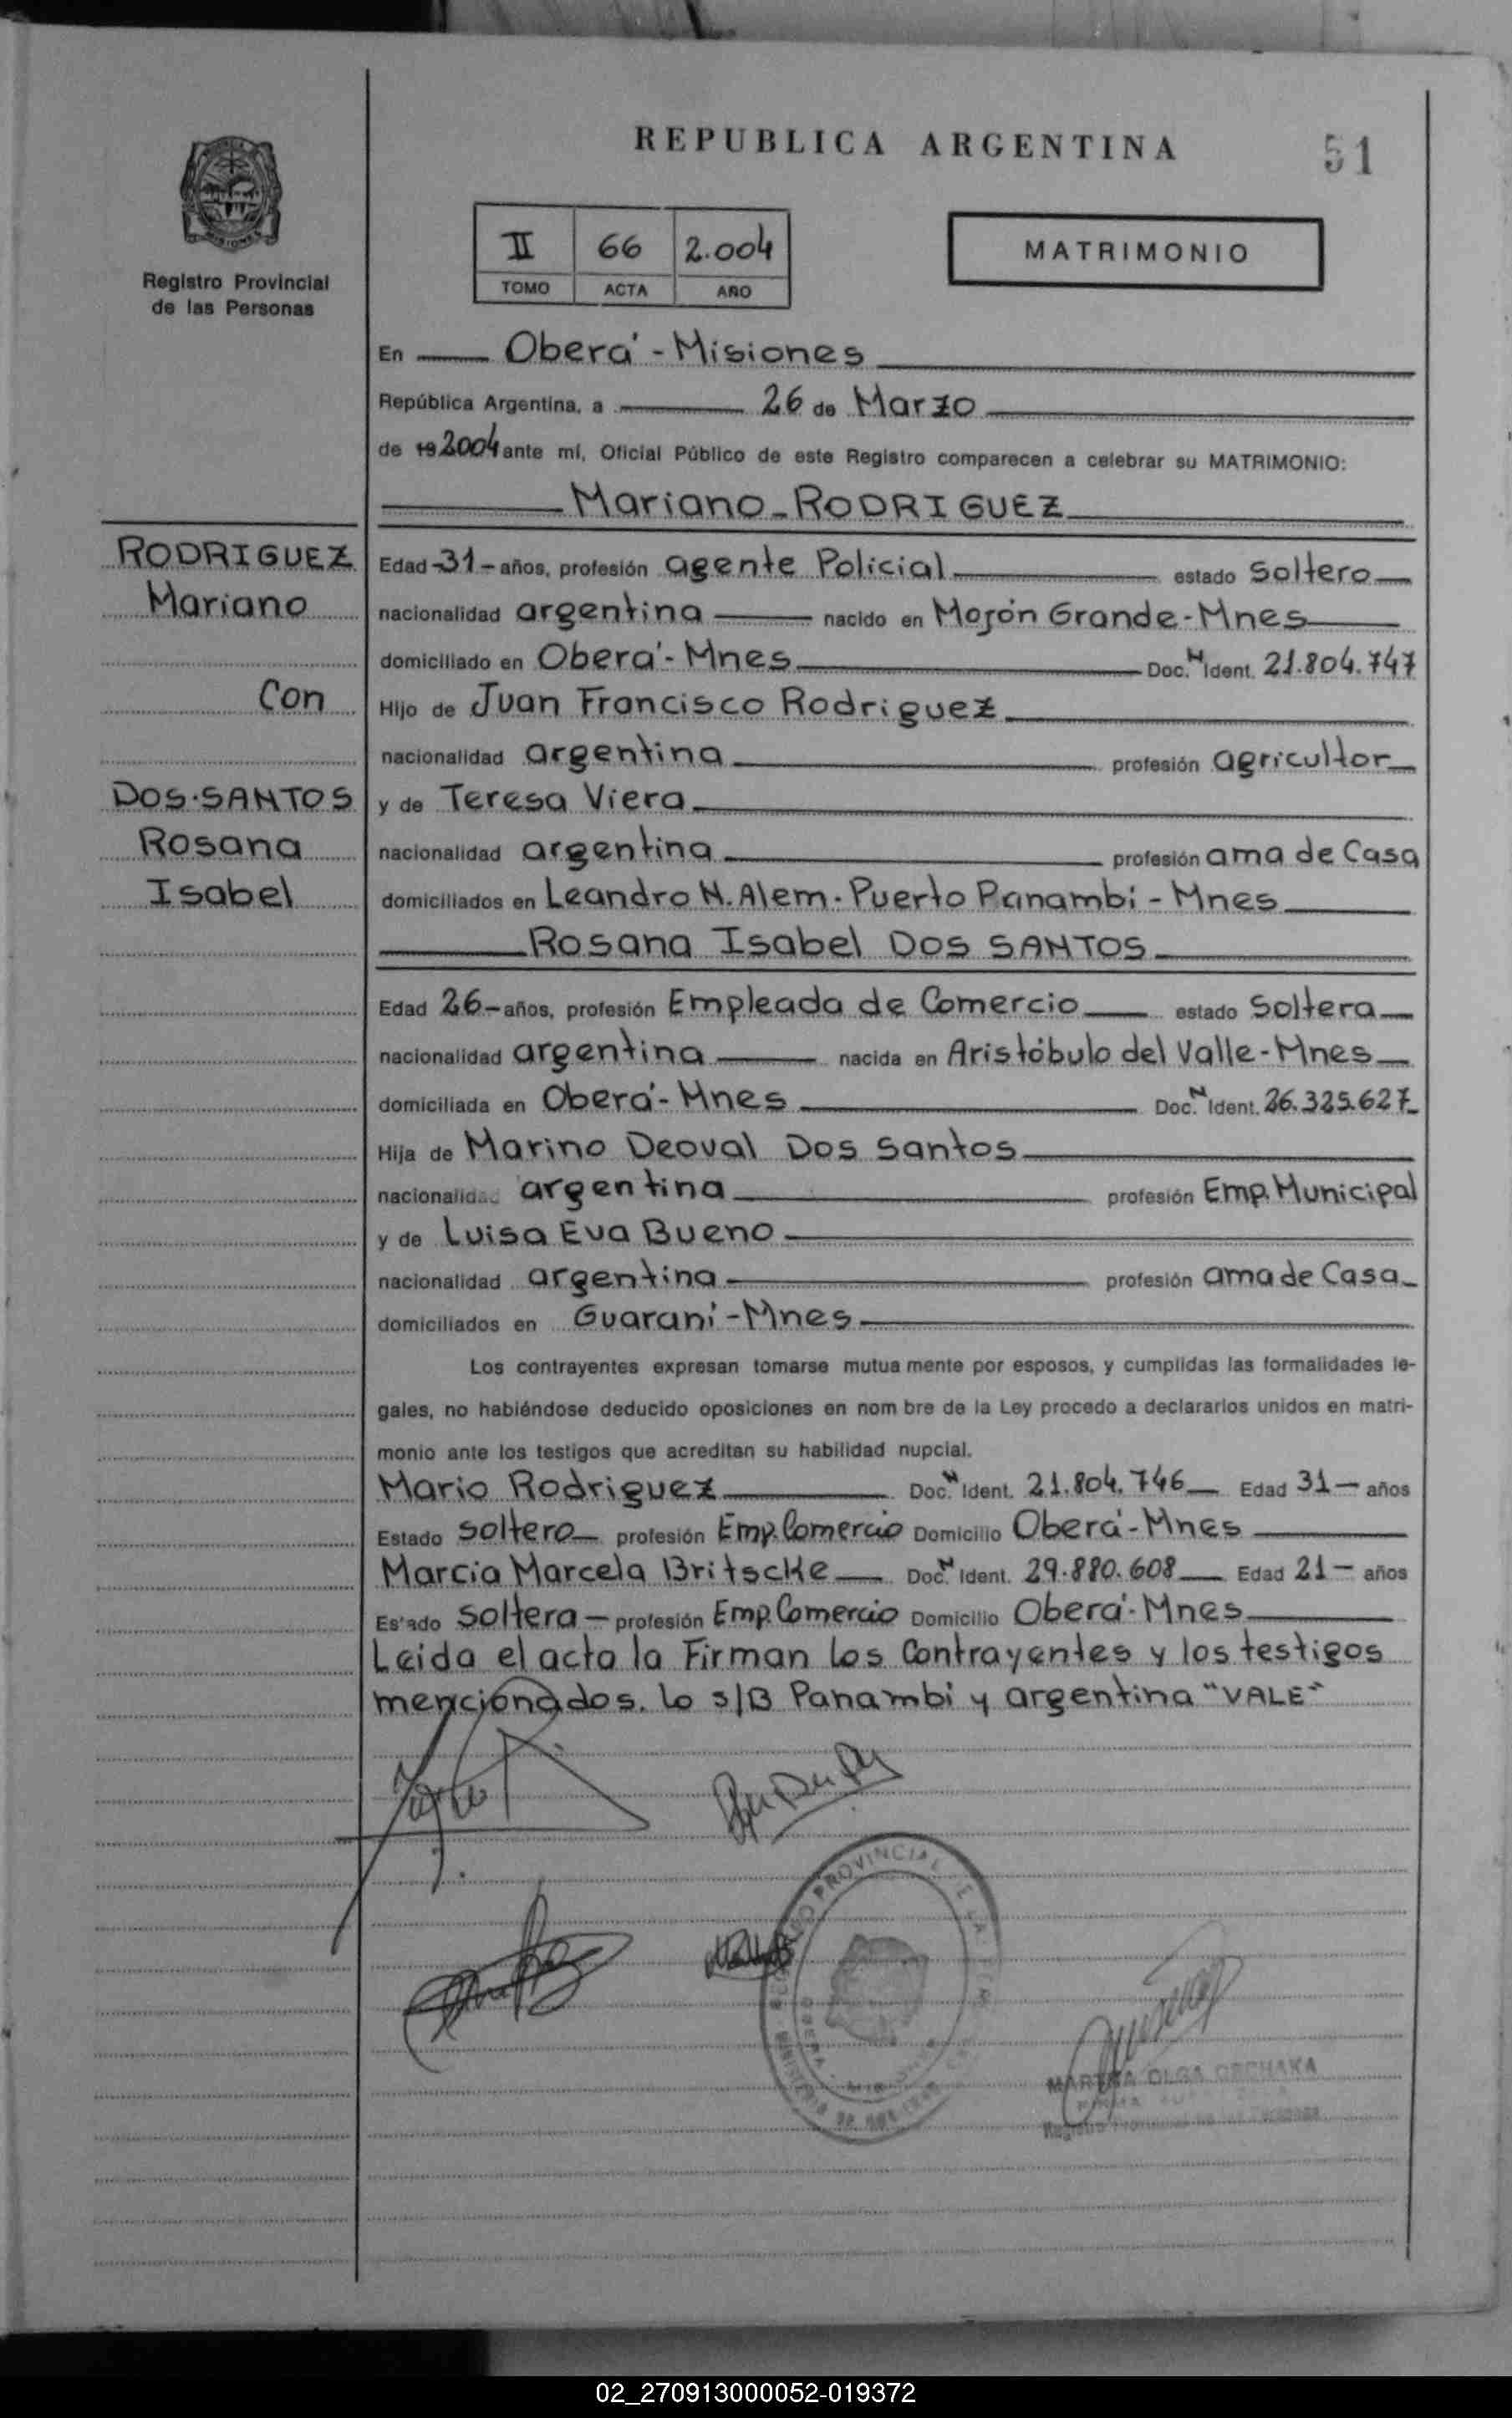 REPUBLICA ARGENTINA
51
Registro Provincial
de las Personas
II 66 2.004
TOMO ACTA AÑO
MATRIMONIO
En Oberá - Misiones
República Argentina, a 26 de Marzo
de 19 2004 ante mí, Oficial Público de este Registro comparecen a celebrar su MATRIMONIO:
Mariano - RODRIGUEZ
RODRIGUEZ
Mariano
Con
DOS SANTOS
Rosana
Isabel
Edad - 31 - años, profesión agente Policial estado soltero
nacionalidad argentina nacido en Mojón Grande - Mnes
domiciliado en Oberá - Mnes Doc. N Ident. 21.804.747
Hijo de Juan Francisco Rodriguez
nacionalidad argentina profesión agricultor
y de Teresa Viera
nacionalidad argentina profesión ama de Casa
domiciliados en Leandro N. Alem - Puerto Panambí - Mnes
Rosana Isabel DOS SANTOS
Edad 26 - años, profesión Empleada de Comercio estado soltera
nacionalidad argentina nacida en Aristóbulo del Valle - Mnes
domiciliada en Oberá - Mnes Doc. N Ident. 26.325.627
Hija de Marino Deoval Dos Santos
nacionalid argentina profesión Emp. Municipal
y de Luisa Eva Bueno
nacionalidad argentina profesión ama de Casa
domiciliados en Guaraní - Mnes
Los contrayentes expresan tomarse mutua mente por esposos, y cumplidas las formalidades le-
gales, no habiéndose deducido oposiciones en nom bre de la Ley procedo a declararlos unidos en matri-
monio ante los testigos que acreditan su habilidad nupcial.
Mario Rodriguez Doc. N Ident. 21.804.746 Edad 31 - años
Estado soltero profesión Emp. Comercio Domicilio Oberá - Mnes
Marcia Marcela Britscke Doc. N Ident. 29.880.608 Edad 21 - años
Estado soltera - profesión Emp. Comercio Domicilio Oberá - Mnes
Leida el acta la Firman los Contrayentes y los testigos
mencionados. lo s/B Panambí y argentina "VALE"
PROVINCIAL
MARTHA OLGA
Registro
02_270913000052-019372